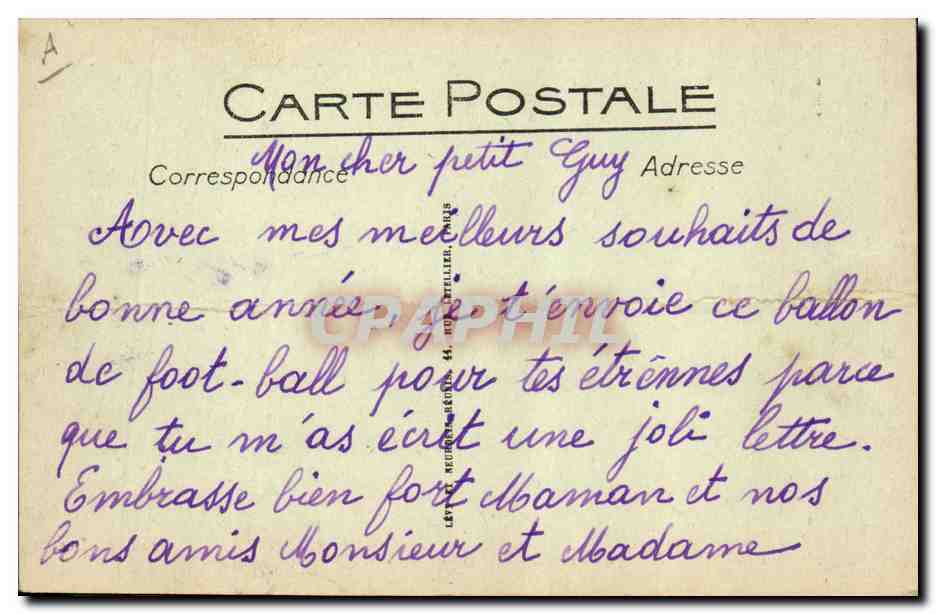 A
CARTE POSTALE
Correspondance
Adresse
Mon cher petit Guy
Avec mes meilleurs souhaits de
bonne année, je t'envoie ce ballon
de foot-ball pour tes étrennes parce
que tu m'as écrit une joli lettre.
Embrasse bien fort Maman et nos
bons amis Monsieur et Madame
LÉVY ET NEURDEIN RÉUNIS, 44, RUE LETELLIER, PARIS
CPAPHIL